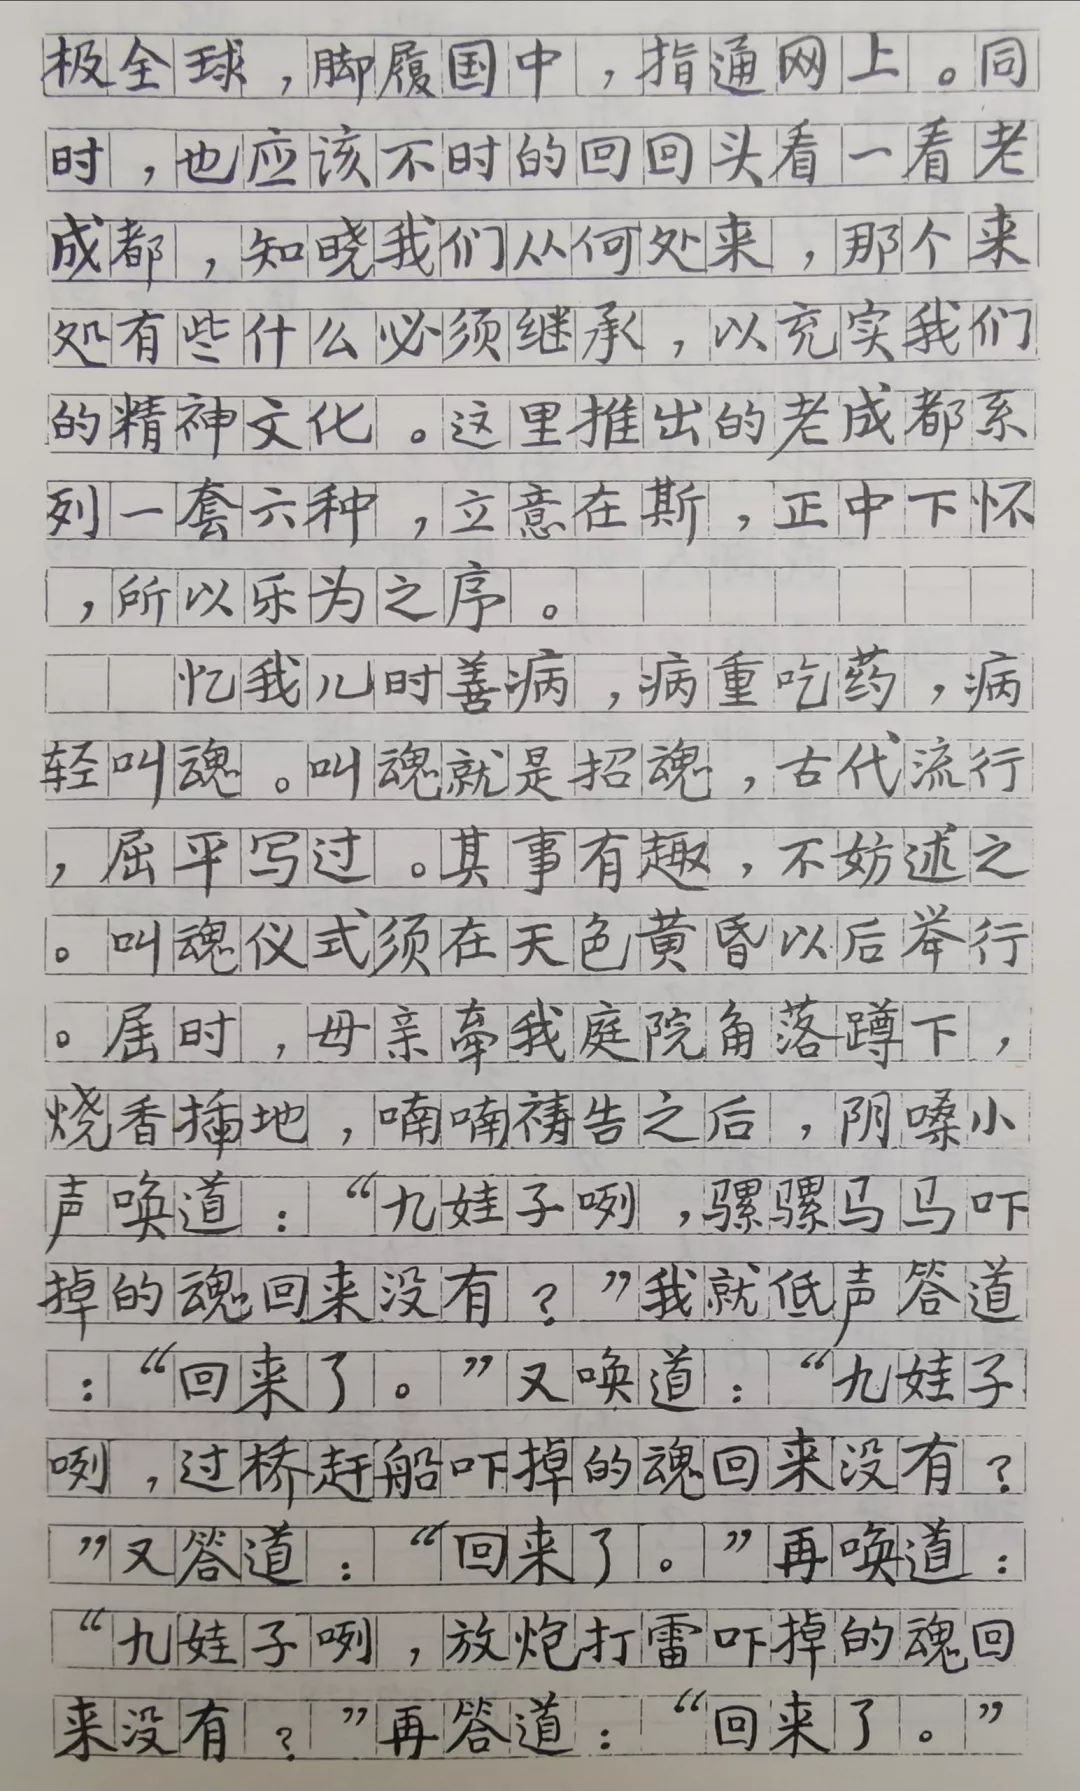 极全球，脚履国中，指通网上。同
时，也应该不时的回回头看一看老
成都，知晓我们从何处来，那个来
处有些什么必须继承，以充实我们
的精神文化。这里推出的老成都系
列一套六种，立意在斯，正中下怀
，所以乐为之序。
忆我儿时善病，病重吃药，病
轻叫魂。叫魂就是招魂，古代流行
，屈平写过。其事有趣，不妨述之
。叫魂仪式须在天色黄昏以后举行
。届时，母亲牵我庭院角落蹲下，
烧香插地，喃喃祷告之后，阴嗓小
声唤道：“九娃子咧，骡骡马马吓
掉的魂回来没有？”我就低声答道
：“回来了。”又唤道：“九娃子
咧，过桥赶船吓掉的魂回来没有？
”又答道：“回来了。”再唤道：
“九娃子咧，放炮打雷吓掉的魂回
来没有？”再答道：“回来了。”